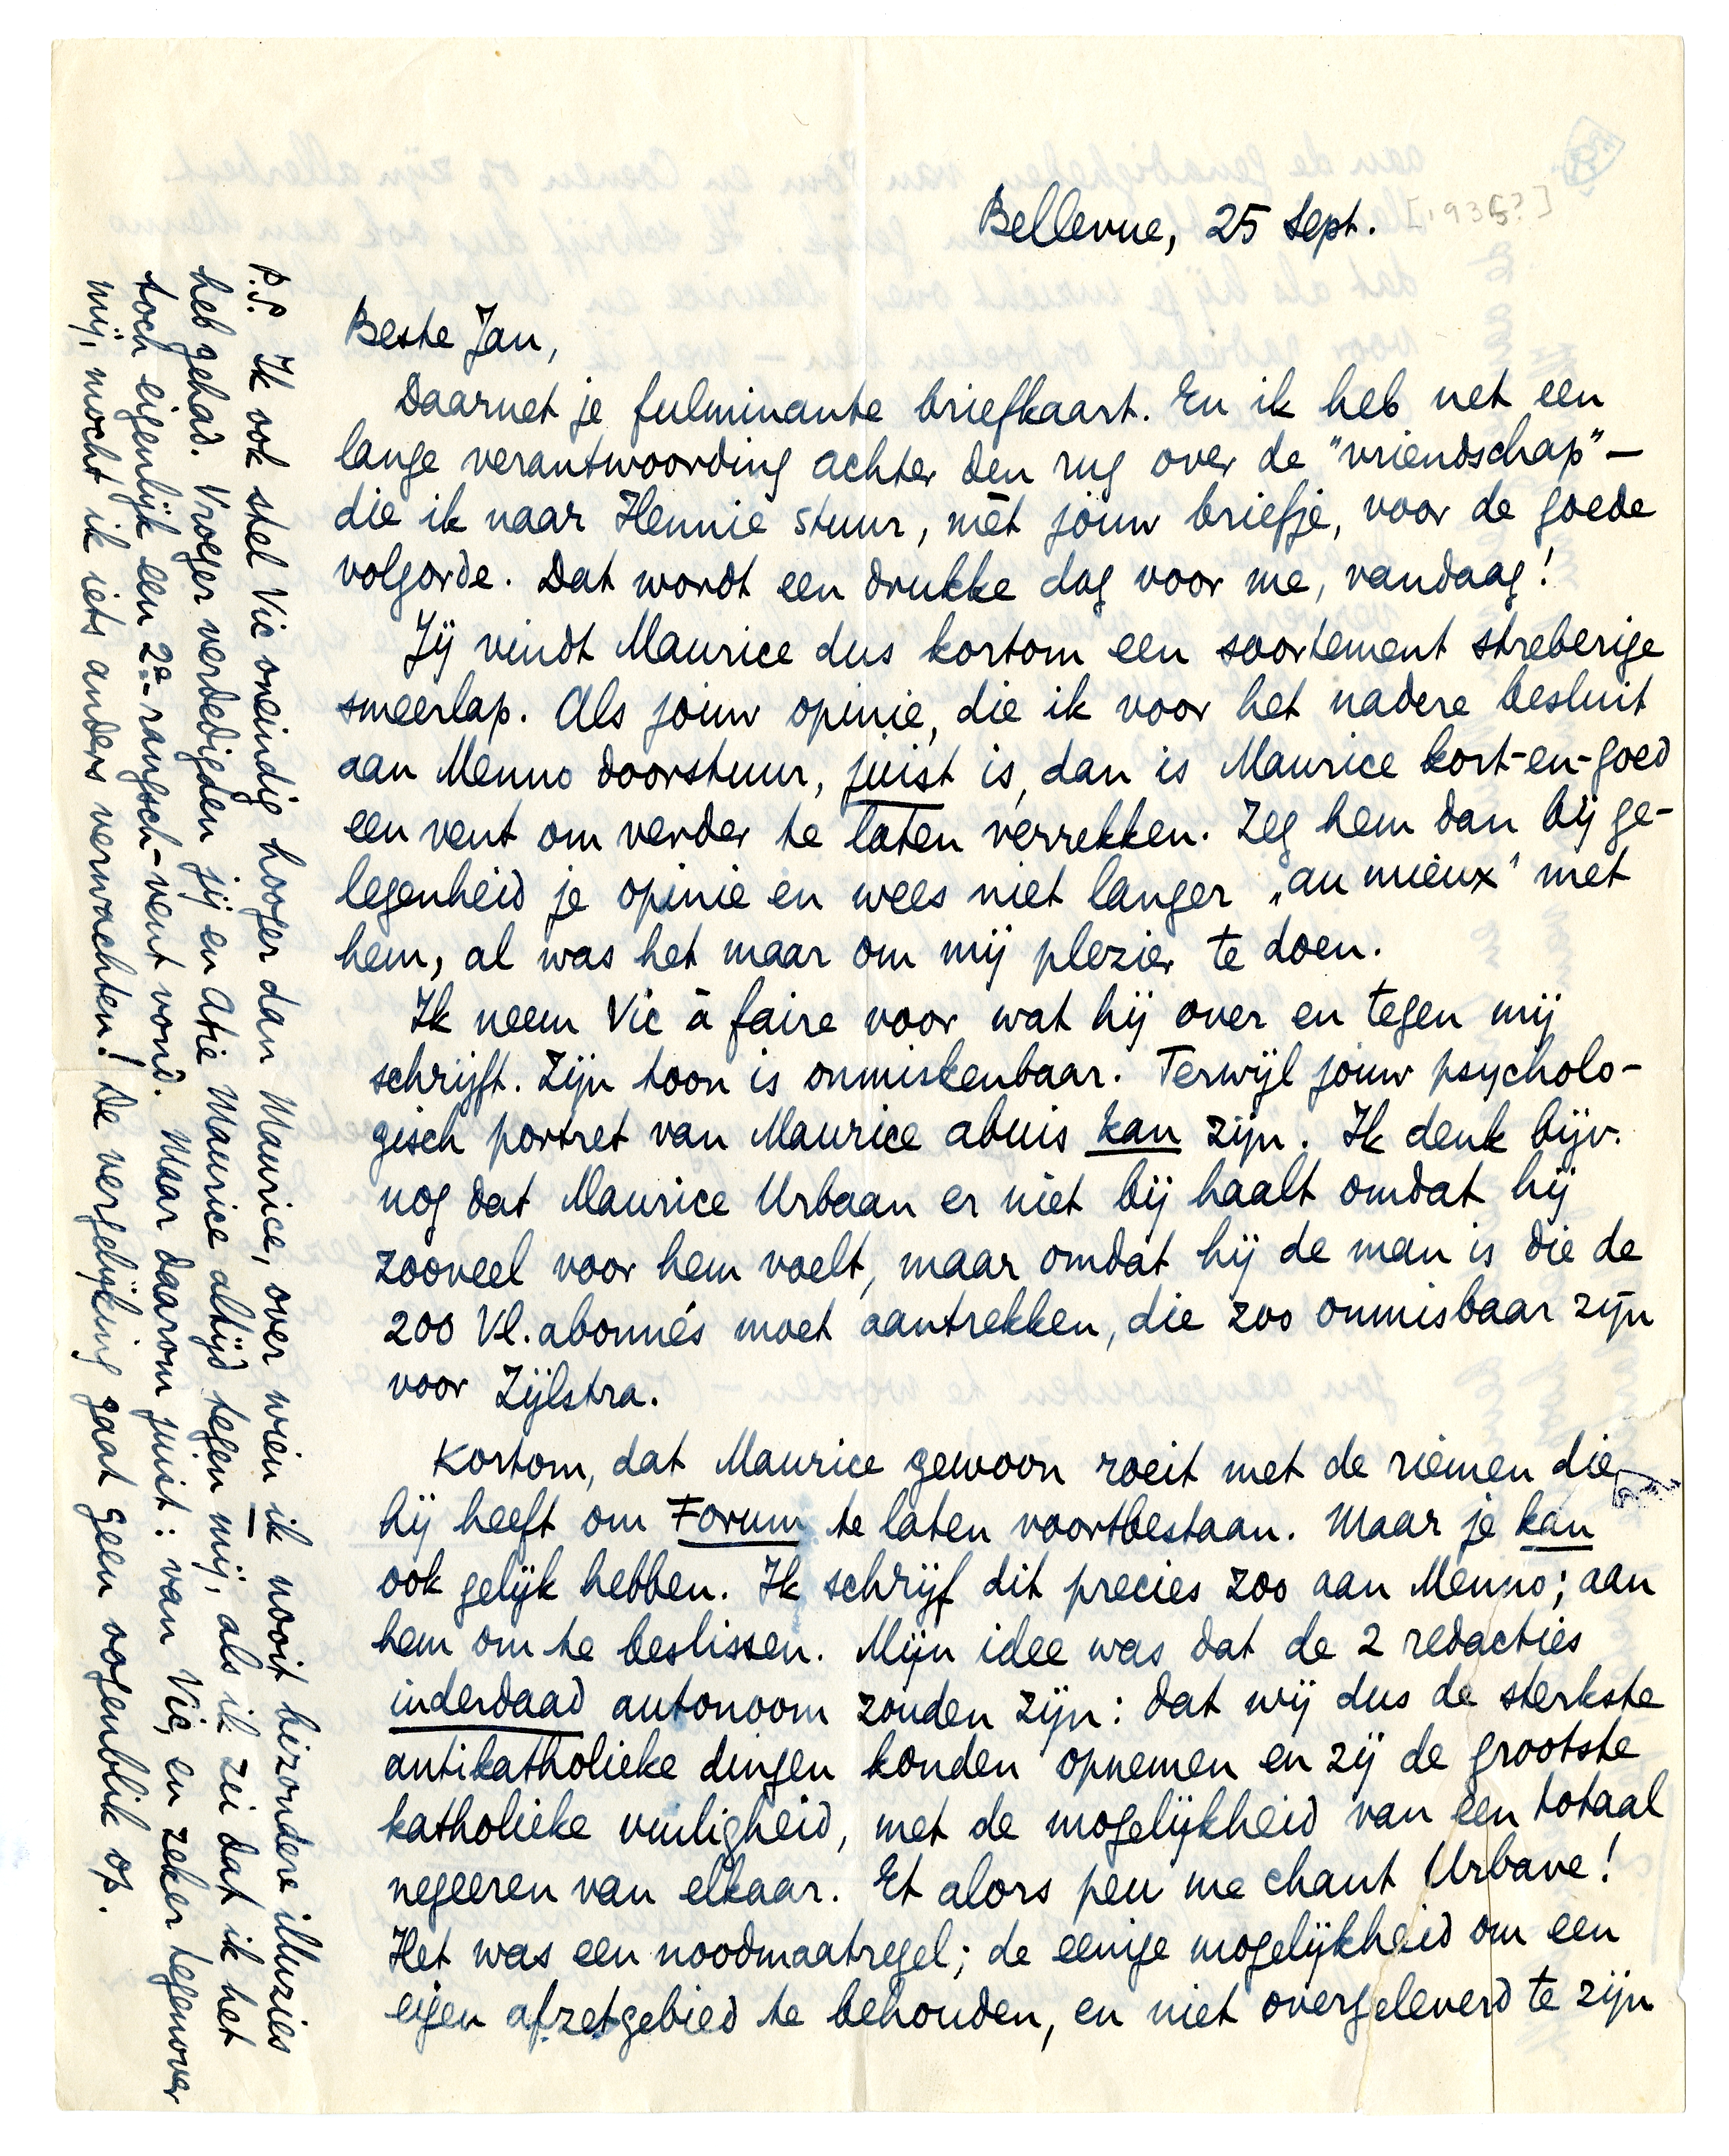 Bellevue, 25 Sept. [1935?]
Beste Jan,
Daarnet je fulminante briefkaart. En ik heb net een
lange verantwoording achter den rug over de "vriendschap" –
die ik naar Hennie stuur, mèt jouw briefje, voor de goede
volgorde. Dat wordt een drukke dag voor me, vandaag!
Jij vindt Maurice dus kortom een soortement streberige
smeerlap. Als jouw opinie, die ik voor het nadere besluit
aan Menno doorstuur, juist is, dan is Maurice kort-en-goed
een vent om verder te laten verrekken. Zeg hem dan bij ge-
legenheid je opinie en wees niet langer „au mieux" met
hem, al was het maar om mij plezier te doen.
Ik neem Vic à faire voor wat hij over en tegen mij
schrijft. Zijn toon is onmiskenbaar. Terwijl jouw psycholo-
gisch portret van Maurice abuis kan zijn. Ik denk bijv.
nog dat Maurice Urbaan er niet bij haalt omdat hij
zooveel voor hem voelt, maar omdat hij de man is die de
200 Vl. abonnés moet aantrekken, die zoo onmisbaar zijn
voor Zijlstra.
Kortom, dat Maurice gewoon roeit met de riemen die
hij heeft om Forum te laten voortbestaan. Maar je kan
ook gelijk hebben. Ik schrijf dit precies zoo aan Menno; aan
hem om te beslissen. Mijn idee was dat de 2 redacties
inderdaad autonoom zouden zijn: dat wij dus de sterkste
antikatholieke dingen konden opnemen en zij de grootste
katholieke vuiligheid, met de mogelijkheid van een totaal
negeeren van elkaar. Et alors peu me chaut Urbane!
Het was een noodmaatregel; de eenige mogelijkheid om een
eigen afzetgebied te behouden, en niet overgeleverd te zijn
P.S. Ik ook stel Vic oneindig hooger dan Maurice, over wien ik nooit bizondere illuzies
heb gehad. Vroeger verdedigden jij en Atie Maurice altijd tegen mij, als ik zei dat ik het
toch eigenlijk een 2e-rangsch-vent vond. Maar daarom juist: van Vic, en zeker tegenover
mij, mocht ik iets anders verwachten! De vergelijking gaat geen oogenblik op.